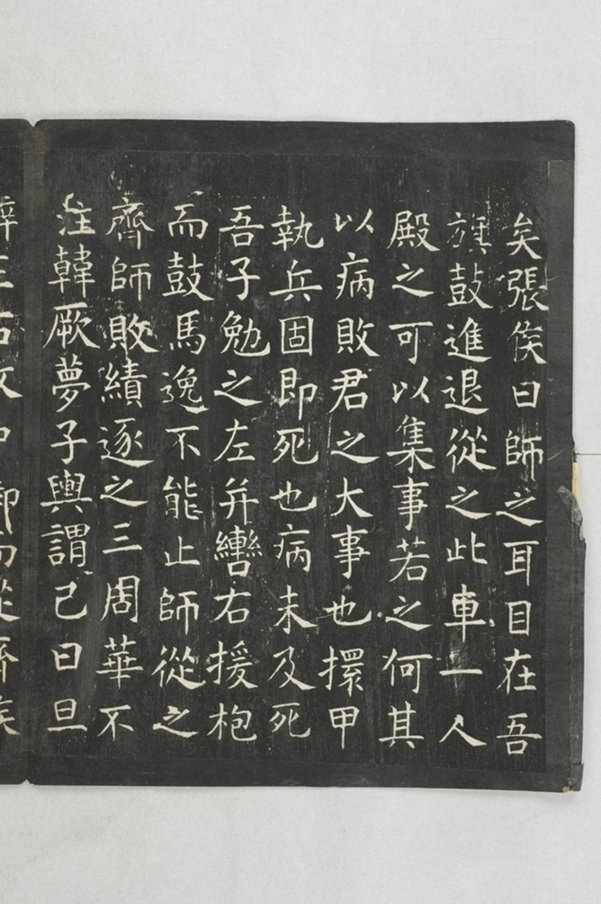 矣張侯曰師之耳目在吾
旗鼓進退從之此車一人
殿之可以集事若之何其
以病敗君之大事也擐甲
執兵固即死也病未及死
吾子勉之左并轡右援枹
而鼓馬逸不能止師從之
齊師敗績逐之三周華不
注韓厥夢子輿謂己曰旦
左右中而從齊侯